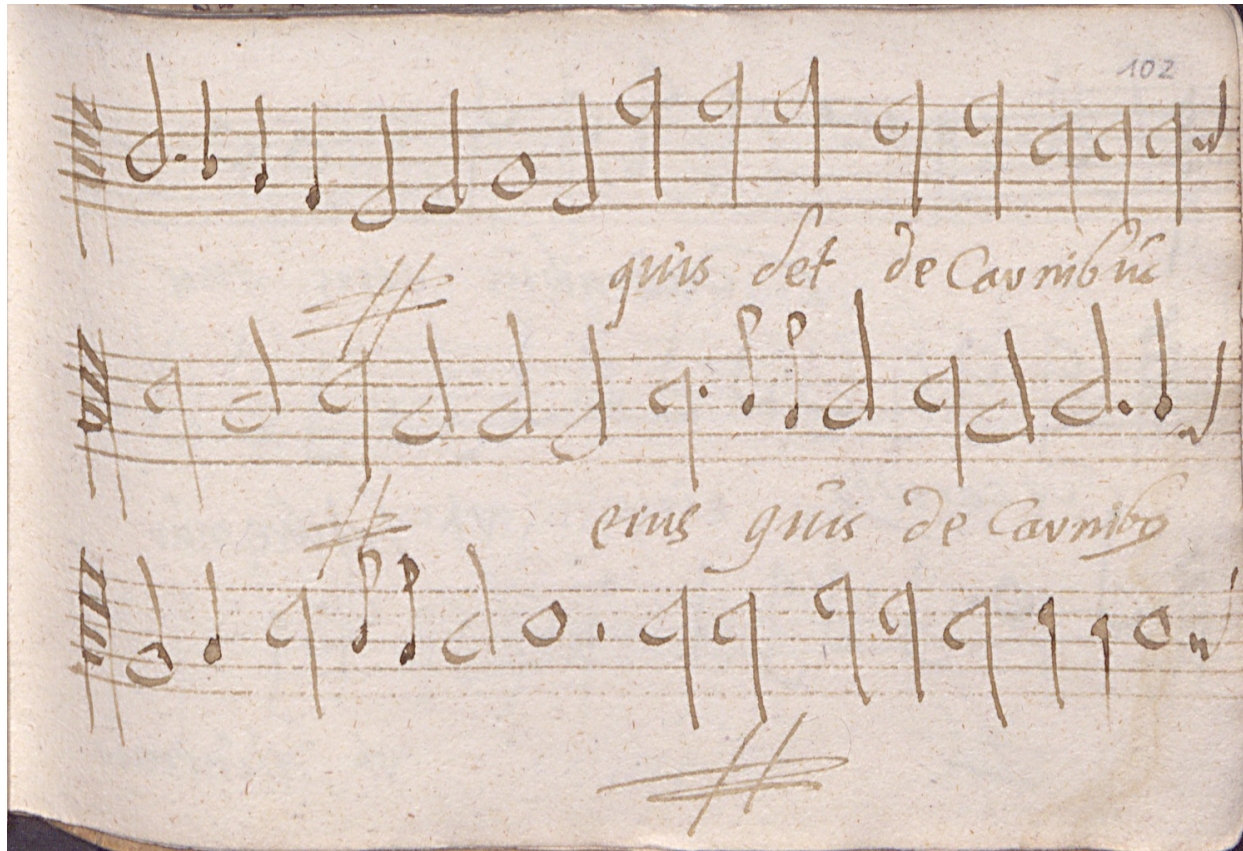 102
quis det de Carnibus
eius quis de Carnibꝰ